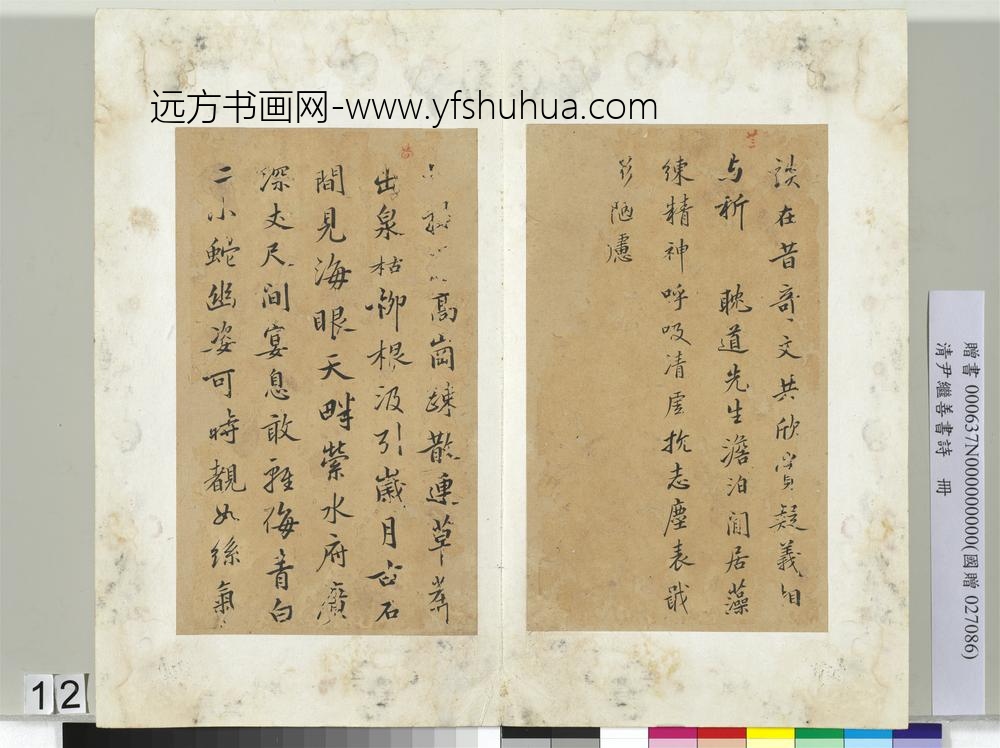 远方书画网-www.yfshuhua.com
談在昔奇文共欣賞疑義相
与析 耽道先生澹泊閒居藻
練精神呼吸清虛抗志塵表戢
形陋廬
高崗疎散連草莽
出泉枯柳根汲引歲月古石
間見海眼天畔縈水府廣
深丈尺间宴息敢輕侮青白
二小蛇幽姿可時覩如絲氣
贈書 000637N000000000(國贈 027086)
清尹繼善書詩 冊
12